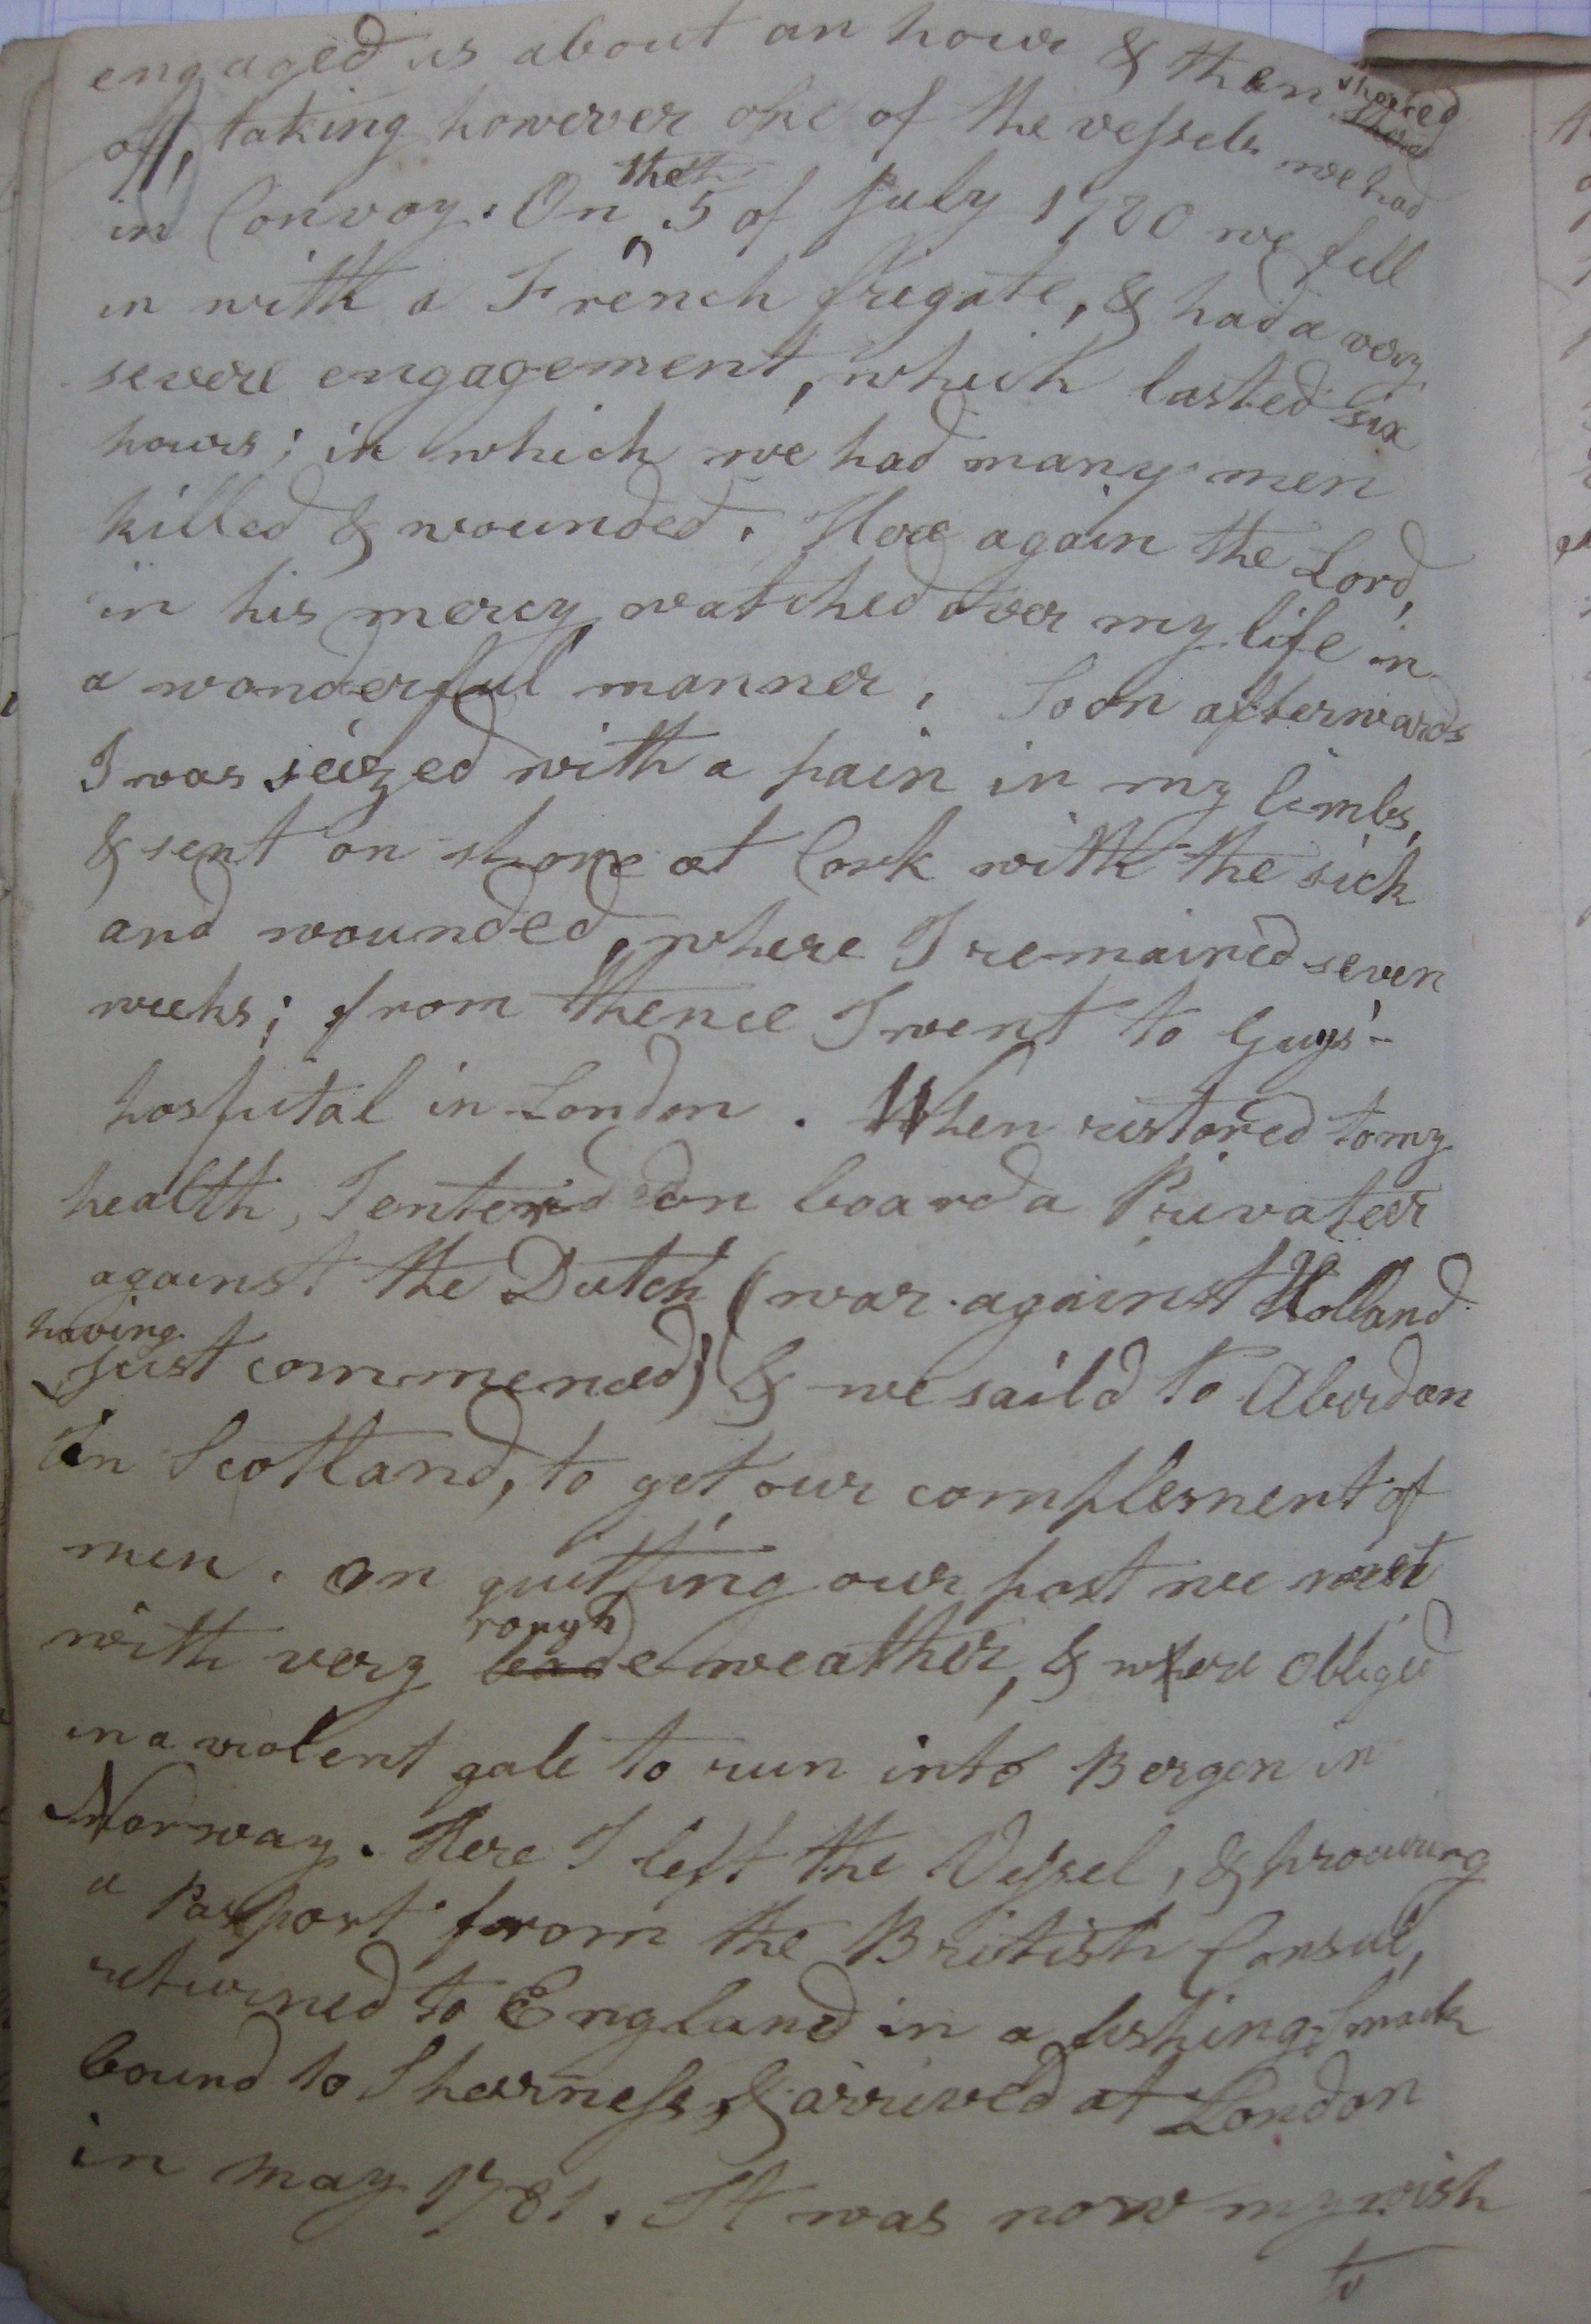 engaged us about an hour & then sheered
off, taking however one of the vessels we had
in Convoy. On the 5th of July 1780 we fell
in with a French frigate, & had a very
severe engagement, which lasted six
hours; in which we had many men
killed & wounded. Here again the Lord,
in his mercy watched over my life in
a wonderful manner. Soon afterwards
I was seized with a pain in my limbs,
& sent on shore at Cork with the sick
and wounded, where I remained seven
weeks; from thence I went to Guys'
hospital in London. When restored to my
health, I entered on board a Privateer
against the Dutch (war against Holland
having just commenced) & we saild to Aberdon
in Scotland, to get our complement of
men. On quitting our port we met
with very rough weather, & were obliged
in a violent gale to run into Bergen in
Norway. Here I left the Vessel, & procuring
a Passport from the British Consul,
returned to England in a fishing Smack
bound to Shearness, & arrived at London
in may 1781. It was now my wish
to